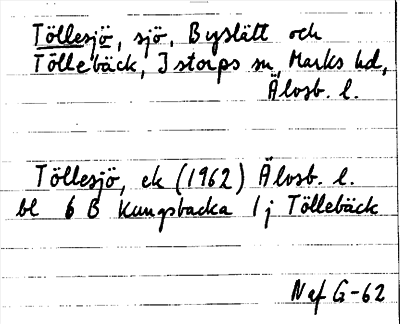 Töllesjö, sjö, Byslätt och
Töllebäck, Istorps sn, Marks hd,
Älvsb. l.
Töllesjö, ek (1962) Älvsb. l.
bl 6 B Kungsbacka 1 j Töllebäck
Naf G-62